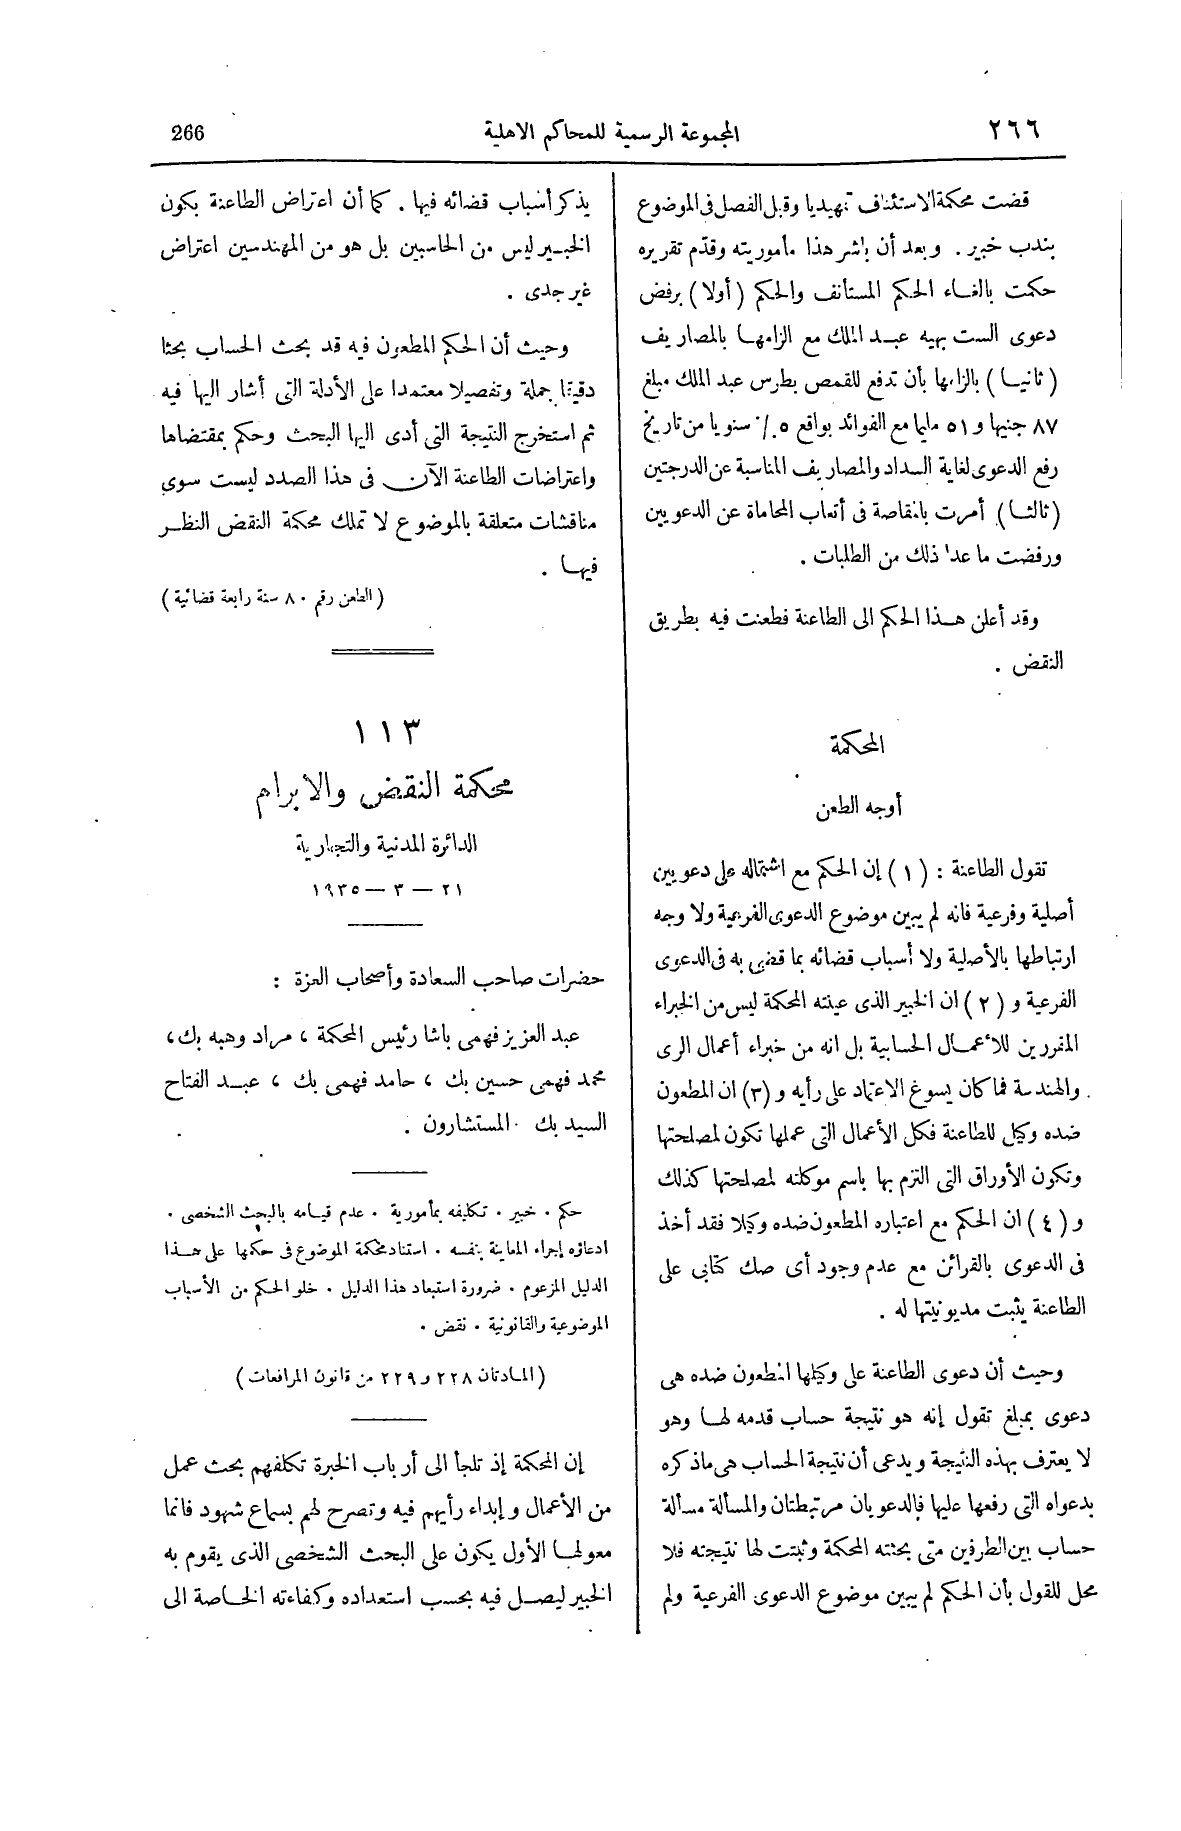 ٢٦٦ المجموعة الرسمية للمحاكم الاهلية 266
قضت محكمة الاستئناف تمهيديا وقبل الفصل فى الموضوع
بندب خبير . وبعد أن باشر هذا مأموريته وقدّم تقريره
حكمت بالغاء الحكم المستأنف والحكم (أولا) برفض
دعوى الست بهيه عبد الملك مع الزامها بالمصاريف
(ثانيا) بالزامها بأن تدفع للقمص بطرس عبد الملك مبلغ
٨٧ جنيها و ٥١ مليما مع الفوائد بواقع ٥ ٪ سنويا من تاريخ
رفع الدعوى لغاية السداد والمصاريف المناسبة عن الدرجتين
(ثالثا) أمرت بالمقاصة فى أتعاب المحاماة عن الدعويين
ورفضت ما عدا ذلك من الطلبات .
وقد أعلن هذا الحكم الى الطاعنة فطعنت فيه بطريق
النقض .
المحكمة
أوجه الطعن
تقول الطاعنة : (١) إن الحكم مع اشتماله على دعويين
أصلية وفرعية فانه لم يبين موضوع الدعوى الفرعية ولا وجه
ارتباطها بالأصلية ولا أسباب قضائه بما قضى به فى الدعوى
الفرعية و (٢) ان الخبير الذى عينته المحكمة ليس من الخبراء
المقررين للأعمال الحسابية بل انه من خبراء أعمال الرى
والهندسة فما كان يسوغ الاعتماد على رأيه و (٣) ان المطعون
ضده وكيل للطاعنة فكل الأعمال التى عملها تكون لمصلحتها
وتكون الأوراق التى التزم بها باسم موكلته لمصلحتها كذلك
و (٤) ان الحكم مع اعتباره المطعون ضده وكيلا فقد أخذ
فى الدعوى بالقرائن مع عدم وجود أى صك كتابى على
الطاعنة يثبت مديونيتها له .
وحيث أن دعوى الطاعنة على وكيلها المطعون ضده هى
دعوى بمبلغ تقول إنه هو نتيجة حساب قدمه لها وهو
لا يعترف بهذه النتيجة ويدعى أن نتيجة الحساب هى ماذكره
بدعواه التى رفعها عليها فالدعويان مرتبطتان والمسألة مسألة
حساب بين الطرفين متى بحثته المحكمة وثبتت لها نتيجته فلا
محل للقول بأن الحكم لم يبين موضوع الدعوى الفرعية ولم
يذكر أسباب قضائه فيها . كما أن اعتراض الطاعنة بكون
الخبير ليس من الحاسبين بل هو من المهندسين اعتراض
غير جدى .
وحيث أن الحكم المطعون فيه قد بحث الحساب بحثا
دقيقا جملة وتفصيلا معتمدا على الأدلة التى أشار اليها فيه
ثم استخرج النتيجة التى أدى اليها البحث وحكم بمقتضاها
واعتراضات الطاعنة الآن فى هذا الصدد ليست سوى
مناقشات متعلقة بالموضوع لا تملك محكمة النقض النظر
فيها .
(الطعن رقم ٨٠ سنة رابعة قضائية)
١١٣
محكمة النقض والابرام
الدائرة المدنية والتجارية
٢١ — ٣ — ١٩٣٥
حضرات صاحب السعادة وأصحاب العزة :
عبد العزيز فهمى باشا رئيس المحكمة ، مراد وهبه بك ،
محمد فهمى حسين بك ، حامد فهمى بك ، عبد الفتاح
السيد بك المستشارون .
حكم . خبير . تكليفه بمأمورية . عدم قيامه بالبحث الشخصى .
ادعاؤه إجراء المعاينة بنفسه . استناد محكمة الموضوع فى حكمها على هذا
الدليل المزعوم . ضرورة استبعاد هذا الدليل . خلو الحكم من الأسباب
الموضوعية والقانونية . نقض .
(المادتان ٢٢٨ و ٢٢٩ من قانون المرافعات)
إن المحكمة إذ تلجأ الى أرباب الخبرة تكلفهم بحث عمل
من الأعمال وإبداء رأيهم فيه وتصرح لهم بسماع شهود فانما
معولها الأول يكون على البحث الشخصى الذى يقوم به
الخبير ليصل فيه بحسب استعداده وكفاءته الخاصة الى